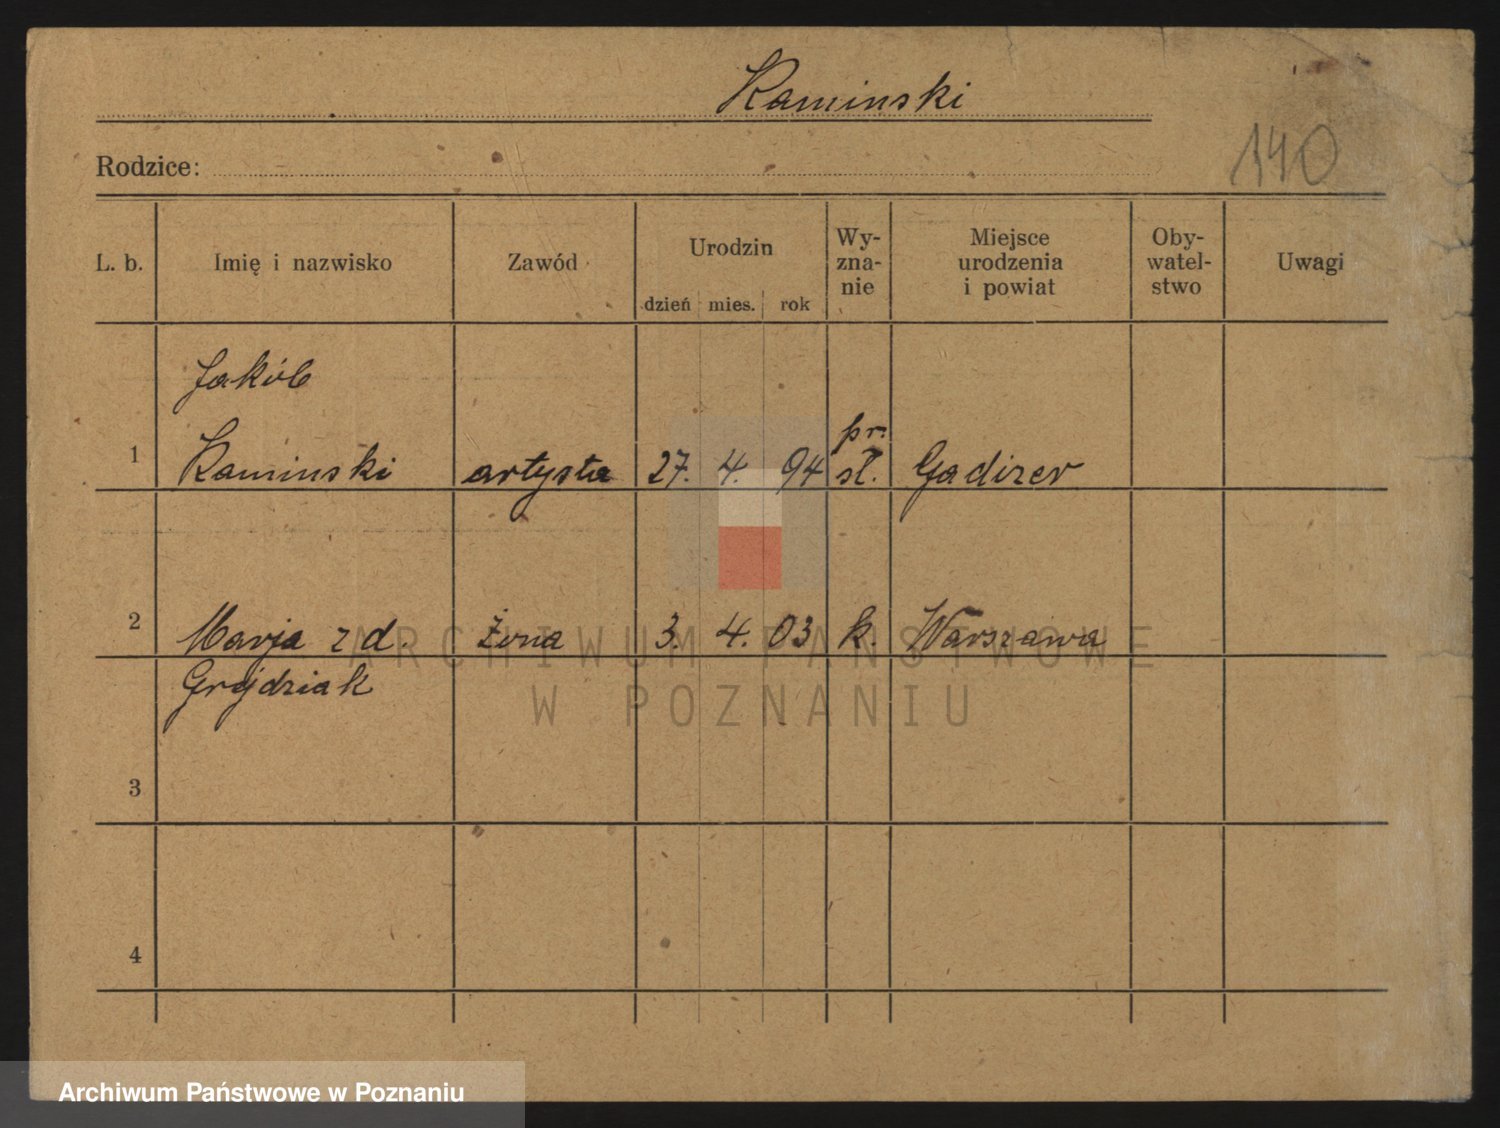 Kaminski
Rodzice:
140
L. b.
Imię i nazwisko
Zawód
Urodzin
dzień mies. rok
Wy-
zna-
nie
Miejsce
urodzenia
i powiat
Oby-
watel-
stwo
Uwagi
Jakób
1 Kaminski artysta 27. 4. 94 pr. sł. Gadizer
2 Marja z d. Żona 3. 4. 03 k. Warszawa
Grójdziak
3
4
ARCHIWUM PAŃSTWOWE
W POZNANIU
Archiwum Państwowe w Poznaniu